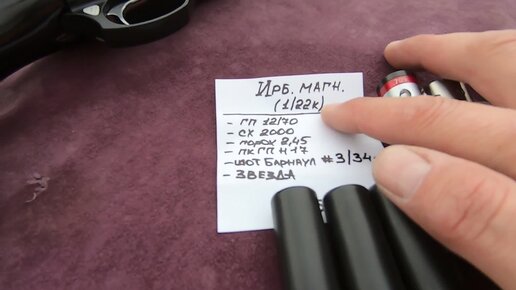 ИРБ. МАГН.
(1/22К)
- ГП 12/70
- СХ 2000
- ПОРОХ 2,45
- ПК ГП Н17
- ШОТ БАРНАУЛ #3/34
- ЗВЕЗДА